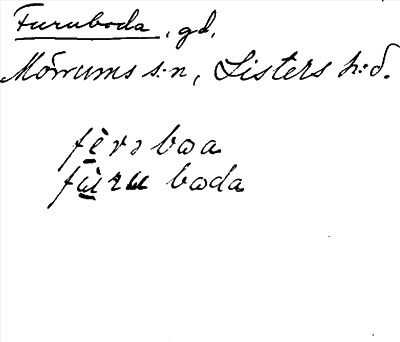 Furuboda, gd,
Mörrums s:n, Listers h:d.
fèrəboa
fùru boda